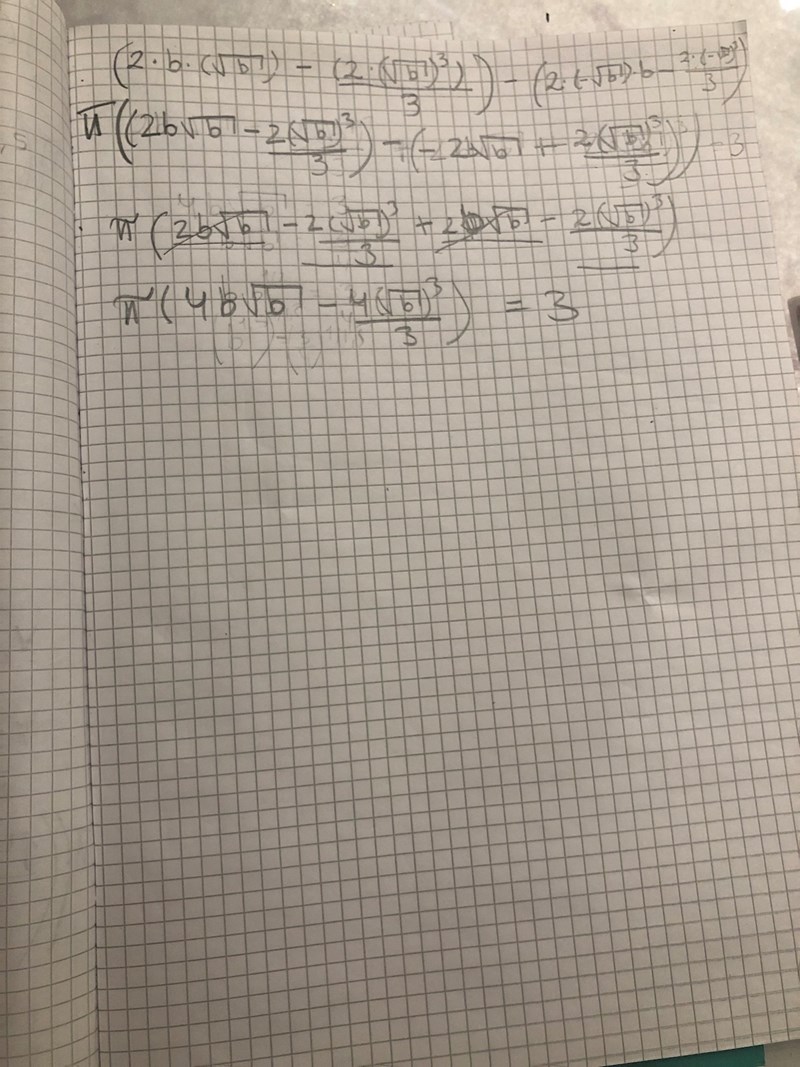 (2·b·(√b) - (2·(√b)³)/3) - (2·(-√b)·b - 2·(-√b)³/3)
π((2b√b - 2(√b)³/3) - (-2b√b + 2(√b)³/3)) = 3
π(2b√b - 2(√b)³/3 + 2b√b - 2(√b)³/3)
π(4b√b - 4(√b)³/3) = 3